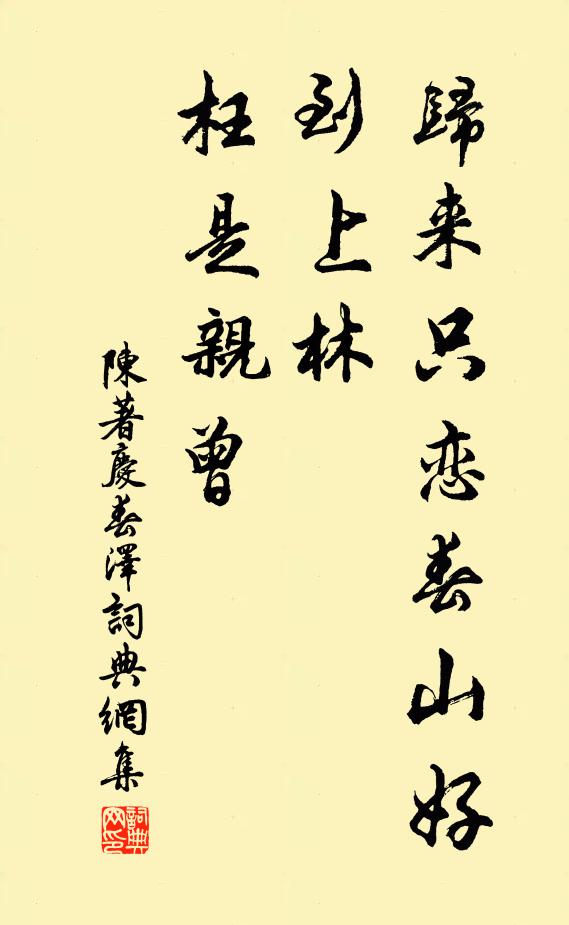 歸来只恋春山好
到上林
枉是親曾
陳著慶春澤詞典網集
詞典网印